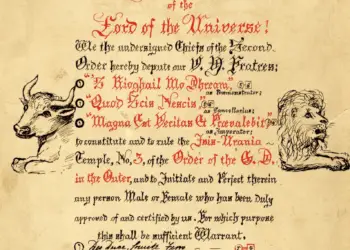 of the
Lord of the Universe!
We the undersigned Chiefs of the Second
Order hereby depute our V. H. Fratres:
"'S Rioghail Mo Dhream,"
as Praemonstrator;
"Quod Scis Nescis,"
as Cancellarius;
"Magna Est Veritas & Praevalebit"
as Imperator;
to constitute and to rule the Isis-Urania
Temple, No. 3, of the Order of the G. D.
in the Outer, and to Initiate and Perfect therein
any person Male or Female who has been duly
approved of and certified by us. For which purpose
this shall be sufficient Warrant.